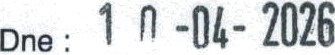 Dne : 10 -04- 2026